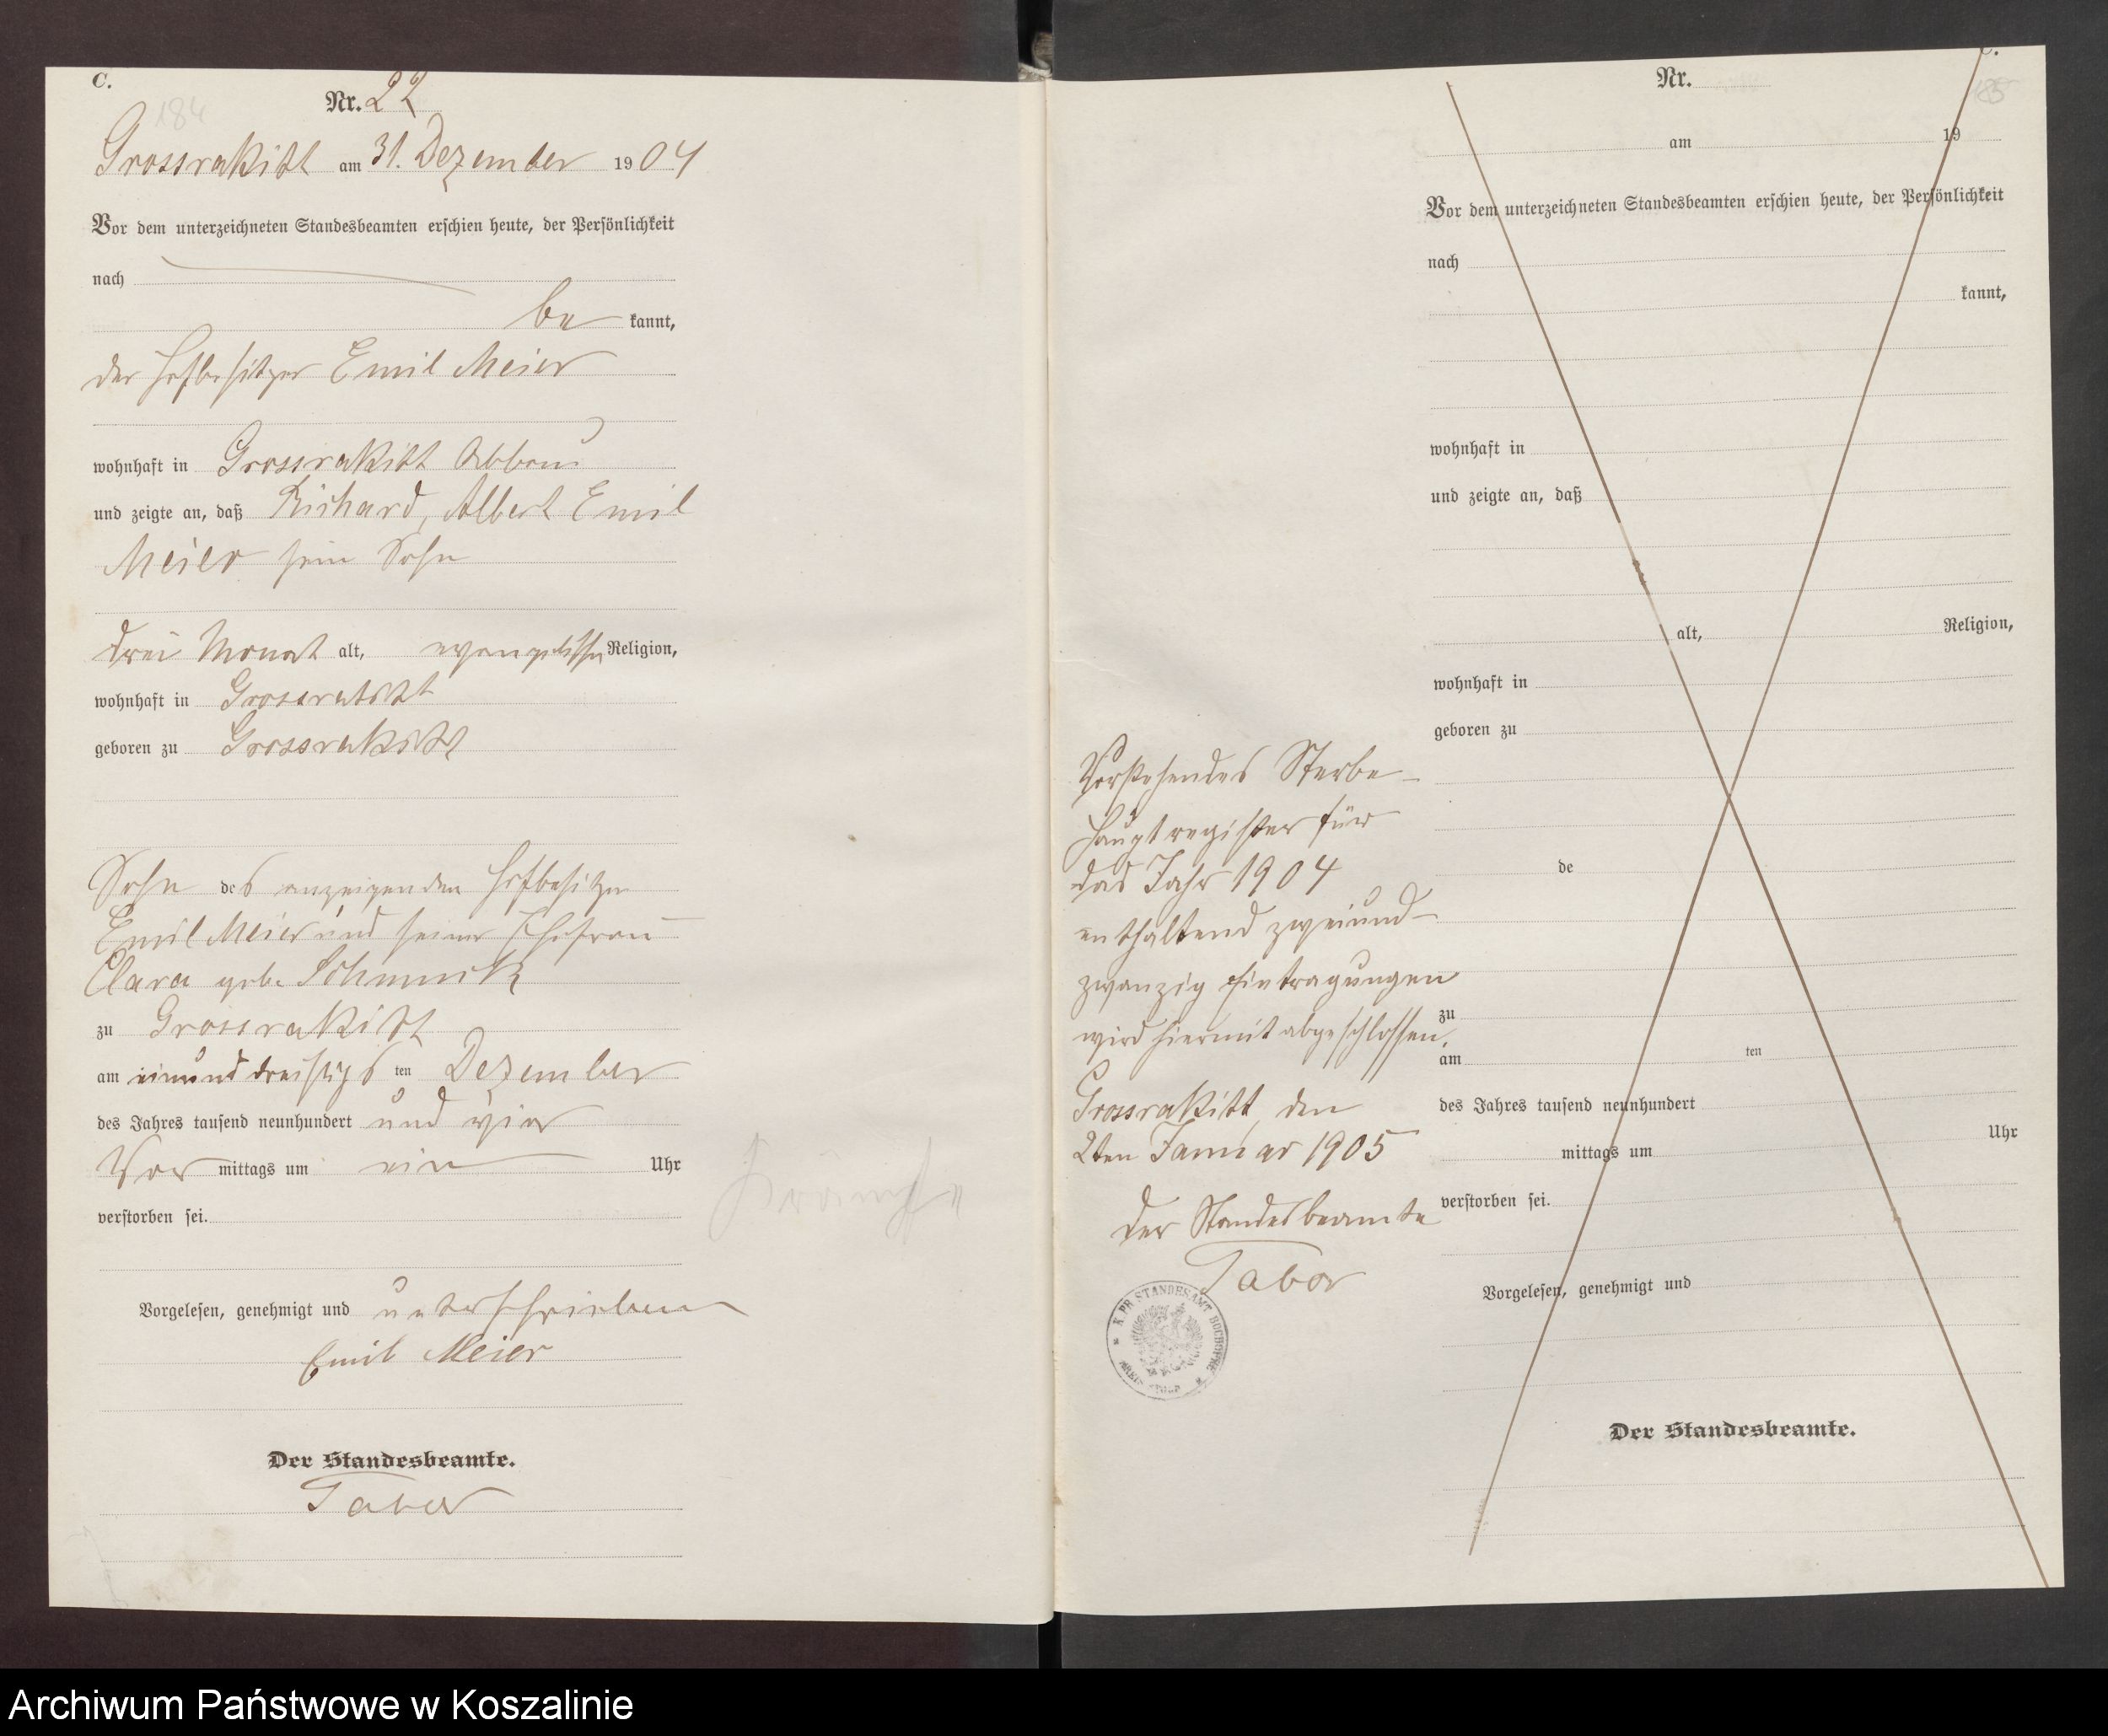 C.
184
Nr. 22
Grossrakitt am 31. Dezember 1904
Vor dem unterzeichneten Standesbeamten erschien heute, der Persönlichkeit
nach
be kannt,
der Hofbesitzer Emil Meier
wohnhaft in Grossrakitt Abbau
und zeigte an, daß Richard, Albert Emil
Meier sein Sohn
drei Monat alt, evangelischer Religion,
wohnhaft in Grossrakitt
geboren zu Grossrakitt
Sohn des anzeigenden Hofbesitzer
Emil Meier und seiner Ehefrau
Clara geb.
zu Grossrakitt
am einunddreißigs ten Dezember
des Jahres tausend neunhundert und vier
Vor mittags um ein Uhr
verstorben sei.
Krämpfe
Vorgelesen, genehmigt und unterschrieben
Emil Meier
Der Standesbeamte.
Tabor
C.
185
Nr.
am 19
Vor dem unterzeichneten Standesbeamten erschien heute, der Persönlichkeit
nach
kannt,
wohnhaft in
und zeigte an, daß
alt, Religion,
wohnhaft in
geboren zu
de
zu
am ten
des Jahres tausend neunhundert
mittags um Uhr
verstorben sei.
Vorgelesen, genehmigt und
Der Standesbeamte.
Vorstehendes Sterbe-
hauptregister für
das Jahr 1904
enthaltend zweiund-
zwanzig Eintragungen
wird hiermit abgeschlossen.
Grossrakitt, den
2ten Januar 1905
Der Standesbeamte
Tabor
K. PR. STANDESAMT
Archiwum Państwowe w Koszalinie